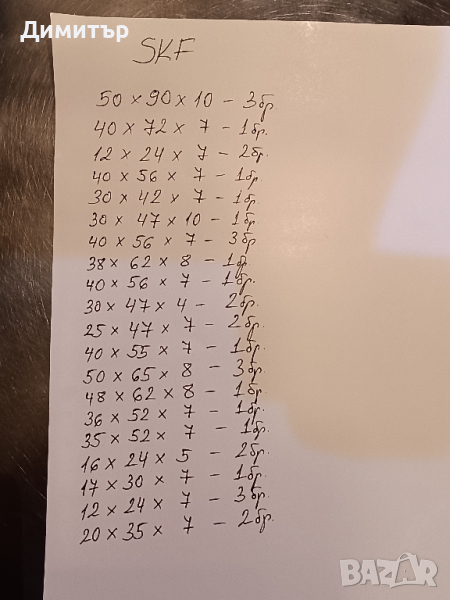 Димитър
SKF
50 x 90 x 10 - 3бр.
40 x 72 x 7 - 1бр.
12 x 24 x 7 - 2бр.
40 x 56 x 7 - 1бр
30 x 42 x 7 - 1бр.
30 x 47 x 10 - 1бр.
40 x 56 x 7 - 3бр
38 x 62 x 8 - 1бр
40 x 56 x 7 - 1бр.
30 x 47 x 4 - 2бр.
25 x 47 x 7 - 2бр.
40 x 55 x 7 - 1бр.
50 x 65 x 8 - 3бр.
48 x 62 x 8 - 1бр.
36 x 52 x 7 - 1бр.
35 x 52 x 7 - 1бр.
16 x 24 x 5 - 2бр.
17 x 30 x 7 - 1бр.
12 x 24 x 7 - 3бр.
20 x 35 x 7 - 2бр.
BAZAR